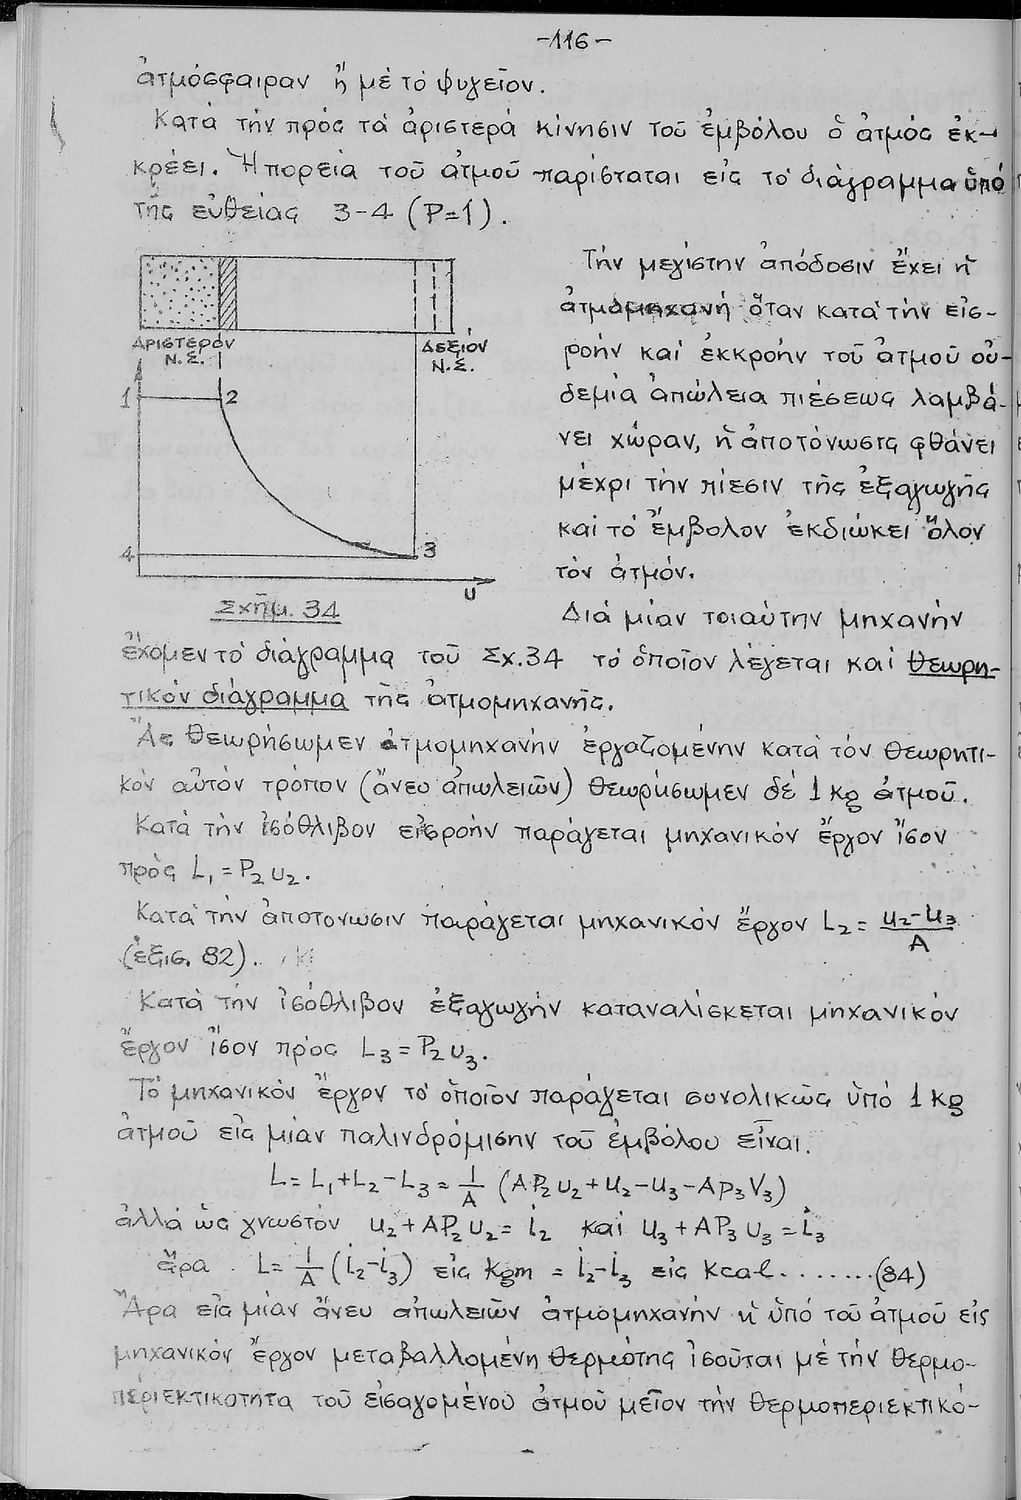 -116-
ἀτμόσφαιραν ἤ μέ τό ψυγεῖον.
Κατά τήν πρός τά ἀριστερά κίνησιν τοῦ ἐμβόλου ὁ ἀτμός ἐκ-
κρέει. Ἡ πορεία τοῦ ἀτμοῦ παρίσταται εἰς τό διάγραμμα ὑπό
τῆς εὐθείας 3-4 (P=1).
Τήν μεγίστην ἀπόδοσιν ἔχει ἡ
ἀτμομηχανή ὅταν κατά τήν εἰσ-
ροήν καί ἐκκροήν τοῦ ἀτμοῦ οὐ-
δεμία ἀπώλεια πιέσεως λαμβά-
νει χώραν, ἡ ἀποτόνωσις φθάνει
μέχρι τήν πίεσιν τῆς ἐξαγωγῆς
καί τό ἔμβολον ἐκδιώκει ὅλον
τόν ἀτμόν.
ΑΡΙΣΤΕΡΟΝ
Ν.Σ.
ΔΕΞΙΟΝ
Ν.Σ.
1 2
4 3
υ
Σχῆμ. 34
Διά μίαν τοιαύτην μηχανήν
ἔχομεν τό διάγραμμα τοῦ Σχ.34 τό ὁποῖον λέγεται καί θεωρη-
τικόν διάγραμμα τῆς ἀτμομηχανῆς.
Ἄς θεωρήσωμεν ἀτμομηχανήν ἐργαζομένην κατά τόν θεωρητι-
κόν αὐτόν τρόπον (ἄνευ ἀπωλειῶν) θεωρήσωμεν δέ 1 kg ἀτμοῦ.
Κατά τήν ἰσόθλιβον εἰσροήν παράγεται μηχανικόν ἔργον ἴσον
πρός L₁ = P₂ υ₂.
Κατά τήν ἀποτονωσιν παράγεται μηχανικόν ἔργον L₂ = (u₂-u₃)/A
(ἐξισ. 82).
Κατά τήν ἰσόθλιβον ἐξαγωγήν καταναλίσκεται μηχανικόν
ἔργον ἴσον πρός L₃ = P₂ υ₃.
Τό μηχανικόν ἔργον τό ὁποῖον παράγεται συνολικῶς ὑπό 1 kg
ἀτμοῦ εἰς μίαν παλινδρόμισην τοῦ ἐμβόλου εἶναι.
L = L₁ + L₂ - L₃ = 1/A (AP₂υ₂ + u₂ - u₃ - Ap₃V₃)
ἀλλά ὡς γνωστόν u₂ + AP₂ υ₂ = i₂ καί u₃ + AP₃ υ₃ = i₃
ἄρα . L = 1/A (i₂-i₃) εἰς kgm = i₂-i₃ εἰς kcal........(84)
Ἄρα εἰς μίαν ἄνευ ἀπωλειῶν ἀτμομηχανήν ἡ ὑπό τοῦ ἀτμοῦ εἰς
μηχανικόν ἔργον μεταβαλλομένη θερμότης ἰσοῦται μέ τήν θερμο-
περιεκτικοτητα τοῦ εἰσαγομένου ἀτμοῦ μεῖον τήν θερμοπεριεκτικό-